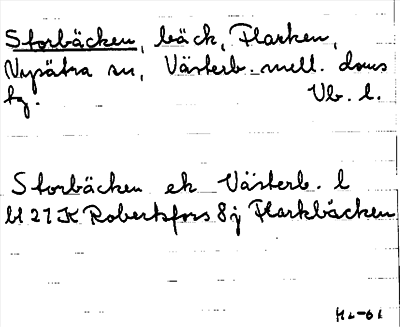 Storbäcken, bäck, Flarken,
Nysätra sn, Västerb. mell. doms
tg. Vb. l.
Storbäcken ek Västerb. l
bl 21 K Robertsfors 8 j Flarkbäcken